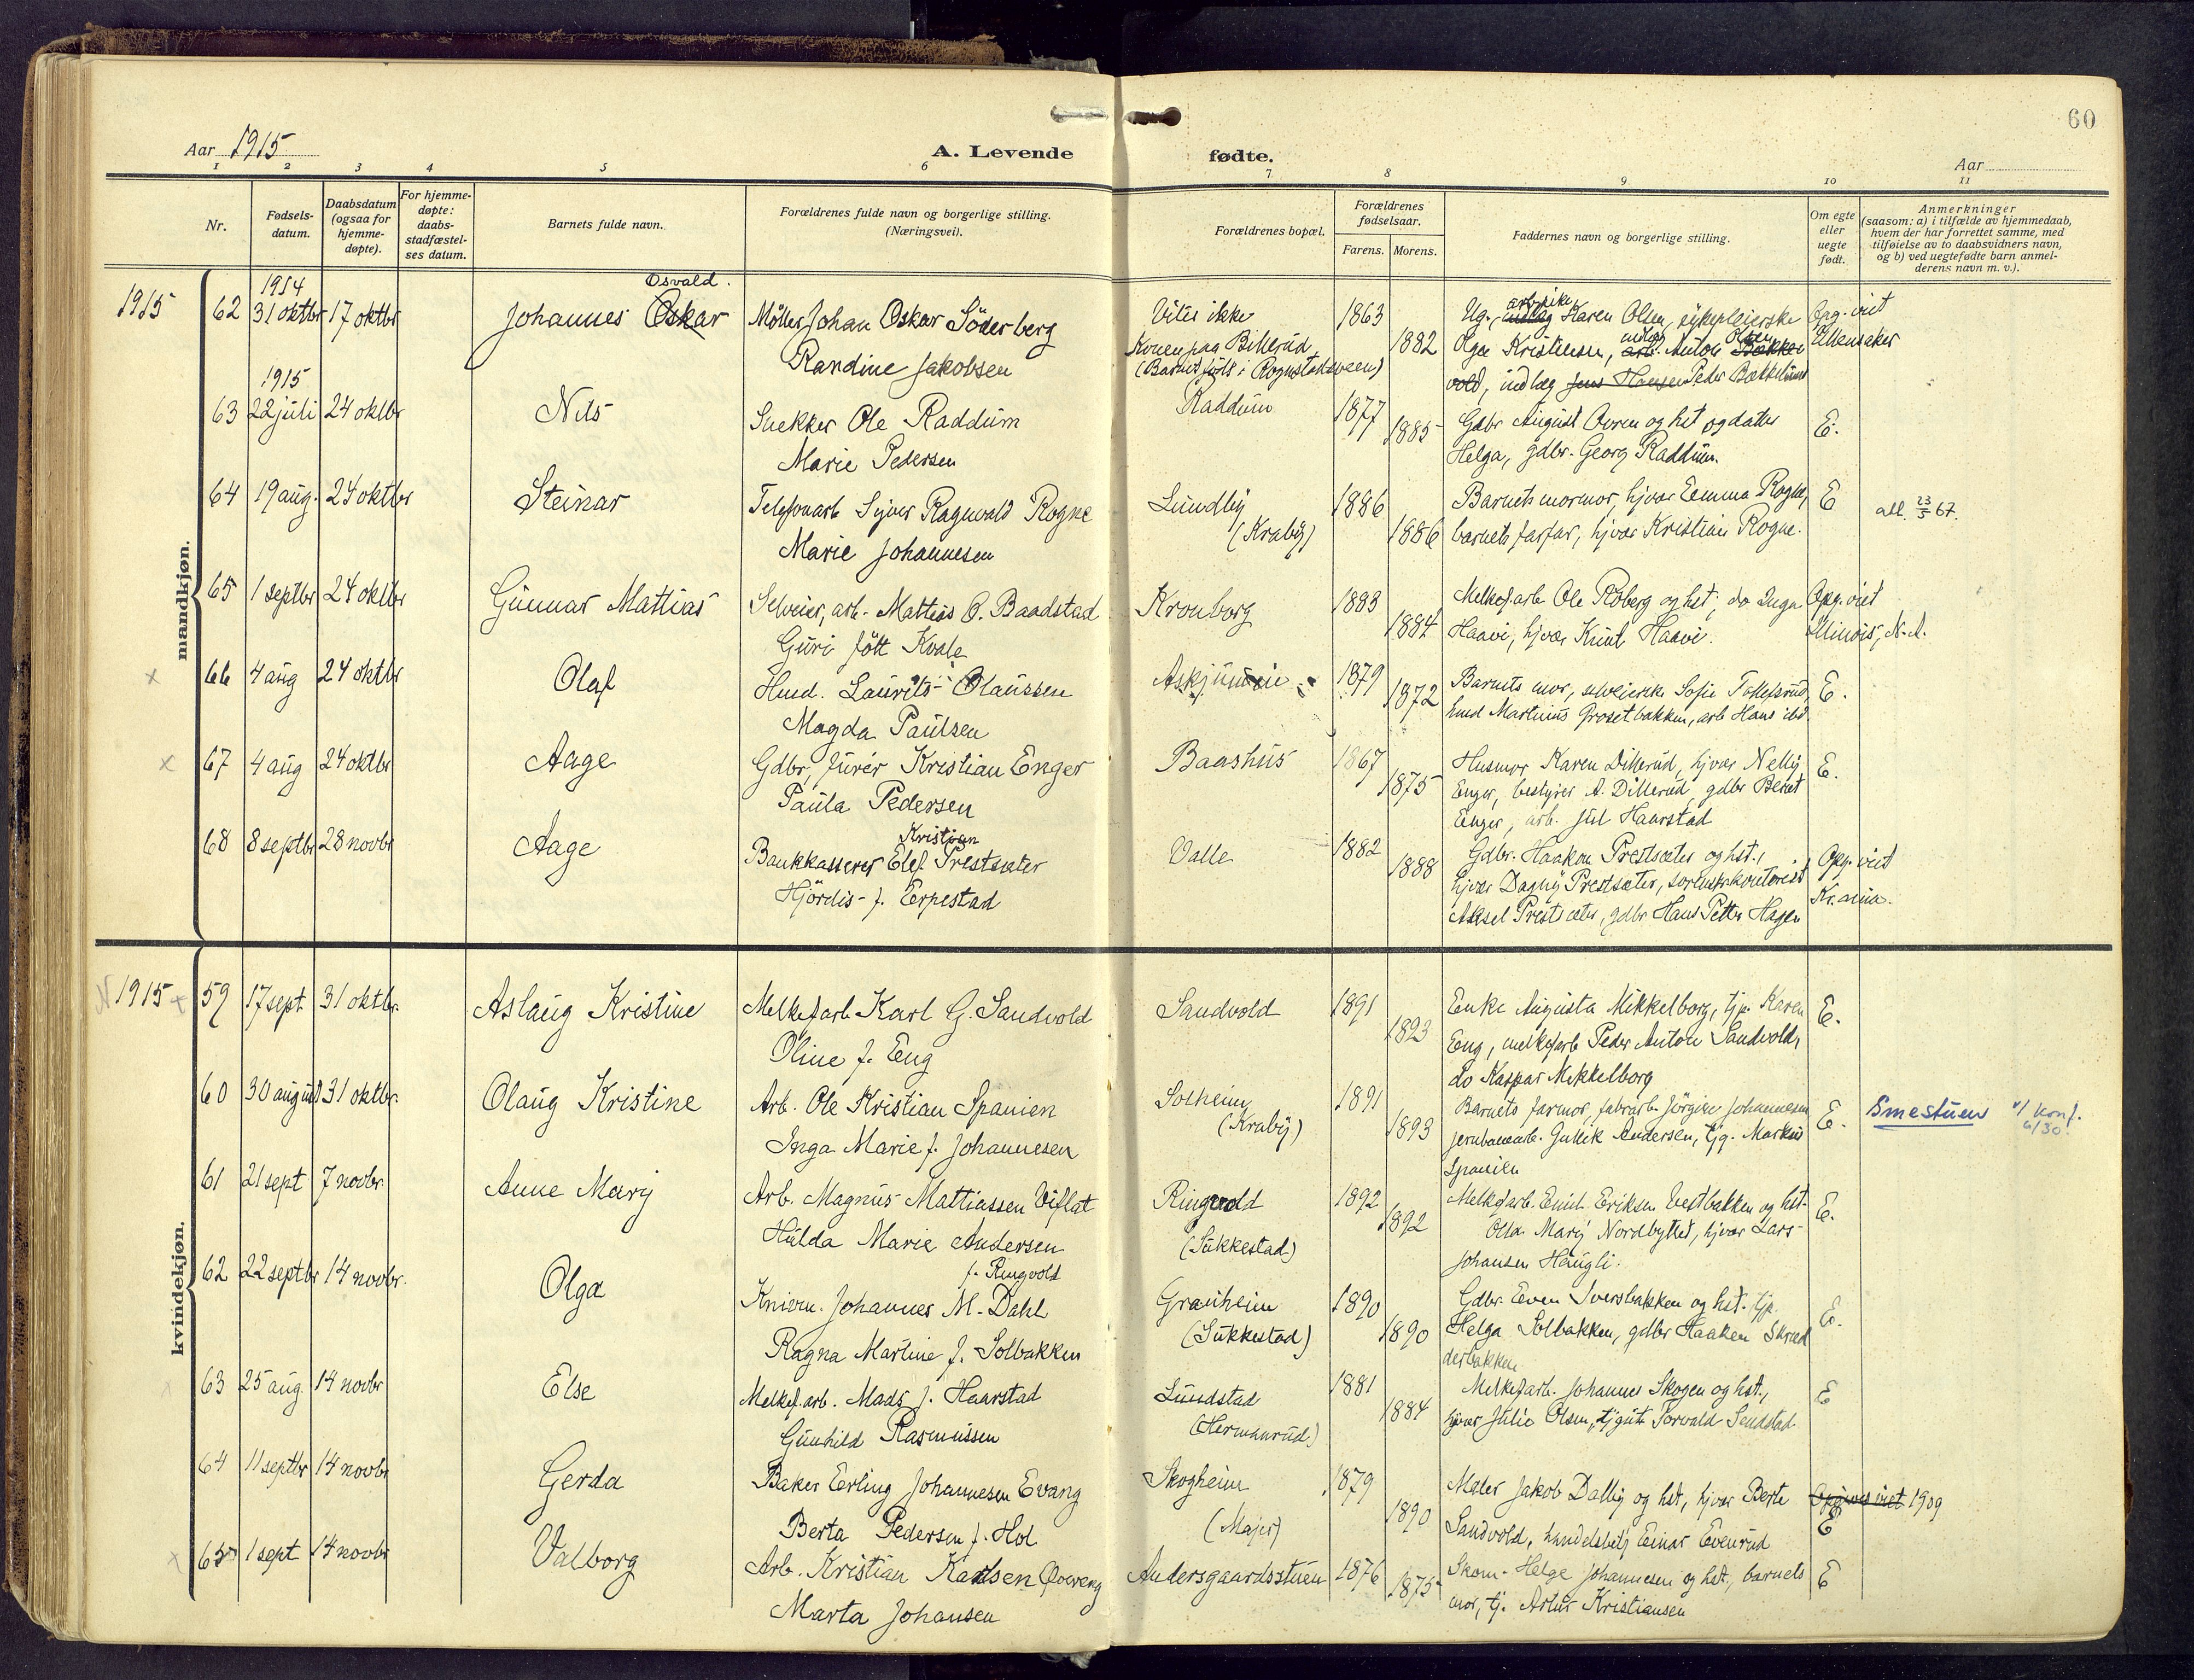 60
Aar 1915
A. Levende fødte.
Aar
1 2 3 4 5 6 7 8 9 10 11
Nr.
Fødsels-
datum.
Daabsdatum
(ogsaa for
hjemme-
døpte).
For hjemme-
døpte:
daabs-
stadfæstel-
ses datum.
Barnets fulde navn.
Forældrenes fulde navn og borgerlige stilling.
(Næringsvei).
Forældrenes bopæl.
Forældrenes
fødselsaar.
Farens. Morens.
Faddernes navn og borgerlige stilling.
Om egte
eller
uegte
født.
Anmerkninger
(saasom: a) i tilfælde av hjemmedaab,
hvem der har forrettet samme, med
tilføielse av to daabsvidners navn,
og b) ved uegtefødte barn anmel-
derens navn m. v.).
mandkjøn.
1915 62 1914 31 oktbr 17 oktbr Johannes Oskar Osvald.
Møller Johan Oskar Söderberg
Randine Jakobsen
Vites ikke
Konen paa Billerud
(Barnet født i Rognstadsveen)
1863 1882
Ug., arb.pike Karen Olsen, sykepleierske
Olga Kristensen, indlæg Anton Olsen
vold, indlæg Jens Hansen Peder Bækkelund
Opg. viet
Ullensaker
63 1915 22 juli 24 oktbr Nils
Snekker Ole Raddum
Marie Pedersen
Raddum 1877 1885
Gdbr August Ovren og hst og datter
Helga, gdbr. Georg Raddum.
E.
64 19 aug. 24 oktbr Steinar
Telefonarb Syver Ragnvald Rogne
Marie Johannesen
Lundby
(Kraby)
1886 1886
Barnets mormor, hjvær Emma Rogne,
barnets farfar, hjvær Kristian Rogne.
E att. 23/5 67.
65 1 septbr 24 oktbr Gunnar Mattias
Selveier, arb. Mattis O. Baadstad
Guri født Kvale
Kronborg 1883 1884
Melkef.arb Ole Roberg og hst; do Inga
Haavi, hjvær Knut Haavi.
Opg. viet
Illinois, N. A.
x 66 4 aug 24 oktbr Olaf
Husmd. Laurits Olaussen
Magda Paulsen
1879 1872
Barnets mor, selveierske Sofie Tollefsrud,
husmd Martinius Grosetbakken, arb Hans ibd.
E.
x 67 4 aug 24 oktbr Aage
Gdbr, furér Kristian Enger
Paula Pedersen
Baashus 1867 1875
Husmor Karen Dillerud, hjvær Nelly
Enger, bestyrer A. Dillerud, gdbr Bernt
Enger, arb. Jul Haarstad
E.
68 8 septbr 28 novbr Aage
Bankkasserer Elef Kristian Prestsæter
Hjördis f. Erpestad
Valle 1882 1888
Gdbr. Haakon Prestsæter og hst.,
hjvær Dagny Prestsæter, sorenskr.kontorist
Aksel Prestsæter, gdbr Hans Petter Hagen
Opg. viet
Kr.ania.
kvindekjøn.
1915 x 59 17 sept 31 oktbr. Aslaug Kristine
Melkef arb Karl G. Sandvold
Oline f. Eng
Sandvold 1891 1893
Enke Augusta Mikkelborg, tjp. Karen
Eng, melkef arb Peder Anton Sandvold,
do Kaspar Mikkelborg
E.
60 30 august 31 oktbr. Olaug Kristine
Arb. Ole Kristian Spanien
Inga Marie f. Johannesen
Solheim
(Kraby)
1891 1893
Barnets farmor, fabrarb. Jörgine Johannesen
jernbanearb. Gulik Andersen, tjg. Markus
Spanien
E. Smestuen v/ konf. 6/30.
61 21 sept 7 novbr. Anne Mary
Arb. Magnus Mattiassen Viflat
Hulda Marie Andersen
f. Ringvold
Ringvold
(Sukkestad)
1892 1892
Melkef arb. Emil Eriksen Vestbakken og hst.
Olla Mary Nordbyttet, hjvær Lars
Johansen Haugli.
E.
62 22 septbr 14 novbr. Olga
Kniern. Johannes M. Dahl
Ragna Martine f. Solbakken
Granheim
(Sukkestad)
1890 1890
Gdbr. Even Iversbakken og hst. tjp.
Helga Solbakken, gdbr Haaken Skræd
derbakken
E.
63 25 aug. 14 novbr Else
Melkef.arb. Mads J. Haarstad
Gunhild Rasmussen
Lundstad
(Hermanrud)
1881 1884
Melkef arb. Johannes Skogen og hst.,
hjvær Julie Olsen, tjgut Torvald Sendstad
E
64 11 septbr 14 novbr Gerda
Baker Erling Johannesen Evang
Berta Pedersen f. Hol
Skogheim
(Majer)
1879 1890
Maler Jakob Dalby og hst, hjvær Berte
Sandvold, handelsbetj Einar Evenrud
Opgives viet 1909
E
x 65 1 sept 14 novbr Valborg
Arb. Kristian Karlsen Övereng
Marta Johansen
Andersgaardsstuen 1876 1875
Skom. Helge Johannesen og hst., barnets
mor, tj. Artur Kristiansen
E